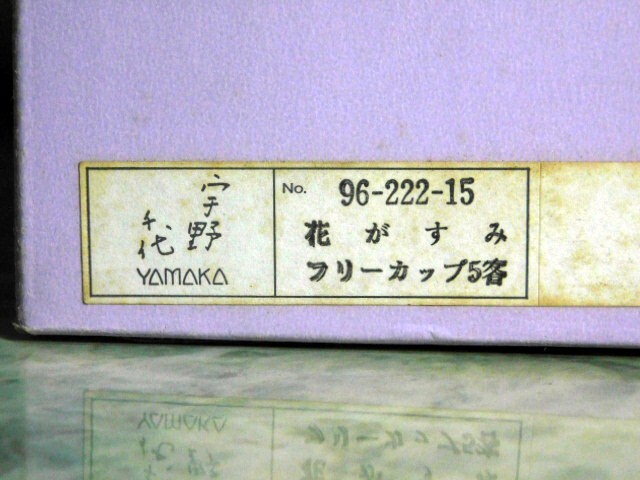 宇野
千代
YAMAKA
No. 96-222-15
花がすみ
フリーカップ5客